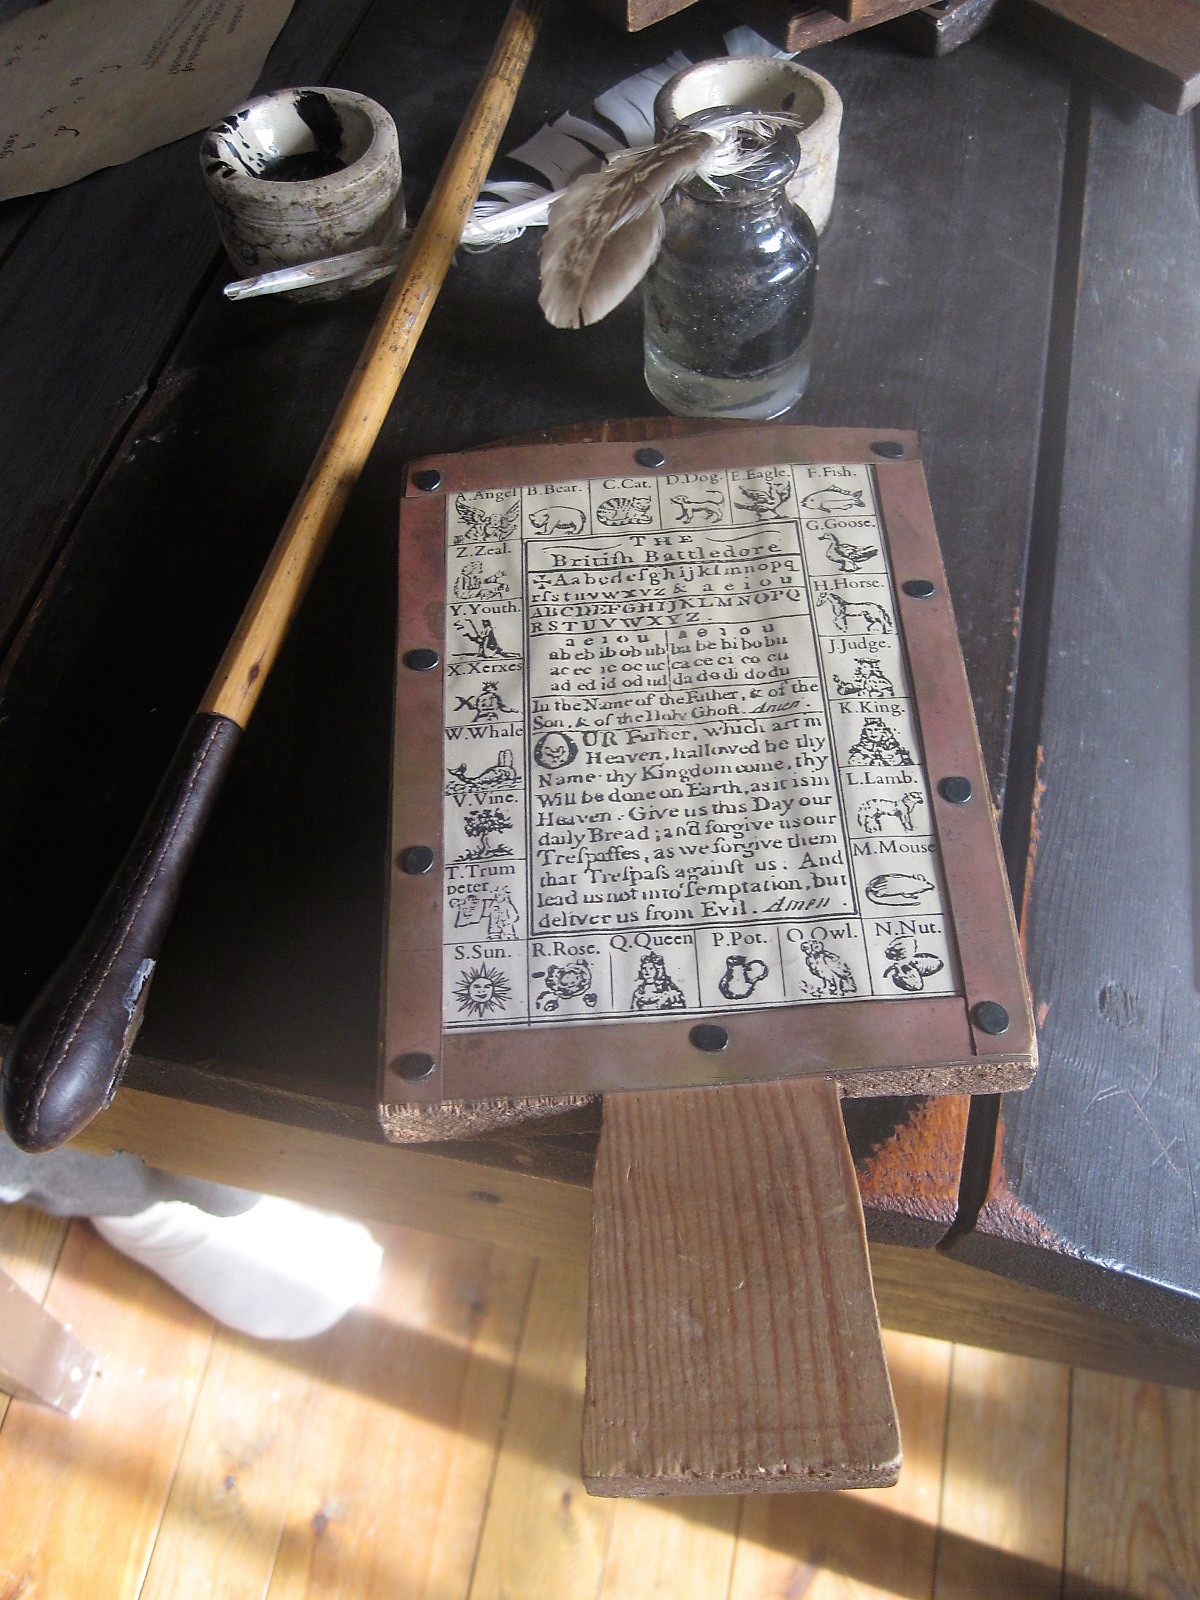 A.Angel B.Bear. C.Cat. D.Dog. E.Eagle. F.Fish.
G.Goose.
H.Horse.
J.Judge.
K.King.
L.Lamb.
M.Mouse
N.Nut.
O.Owl.
P.Pot.
Q.Queen
R.Rose.
S.Sun.
T.Trum
peter
V.Vine.
W.Whale
X.Xerxes
X
Y.Youth.
Z.Zeal.
THE
Britiſh Battledore
✠Aabcdefghijklmnopq
rſstuvwxyz& a e i o u
ABCDEFGHIJKLMNOPQ
RSTUVWXYZ.
a e i o u a e i o u
ab eb ib ob ub ba be bi bo bu
ac ec ic oc uc ca ce ci co cu
ad ed id od ud da de di do du
In the Name of the Father, & of the
Son, & of the Holy Ghoſt. Amen.
OUR Father, which art in
Heaven, hallowed be thy
Name· thy Kingdom come, thy
Will be done on Earth, as it is in
Heaven. Give us this Day our
daily Bread; and forgive us our
Treſpaſſes, as we forgive them
that Treſpaſs againſt us: And
lead us not into Temptation, but
deliver us from Evil. Amen.